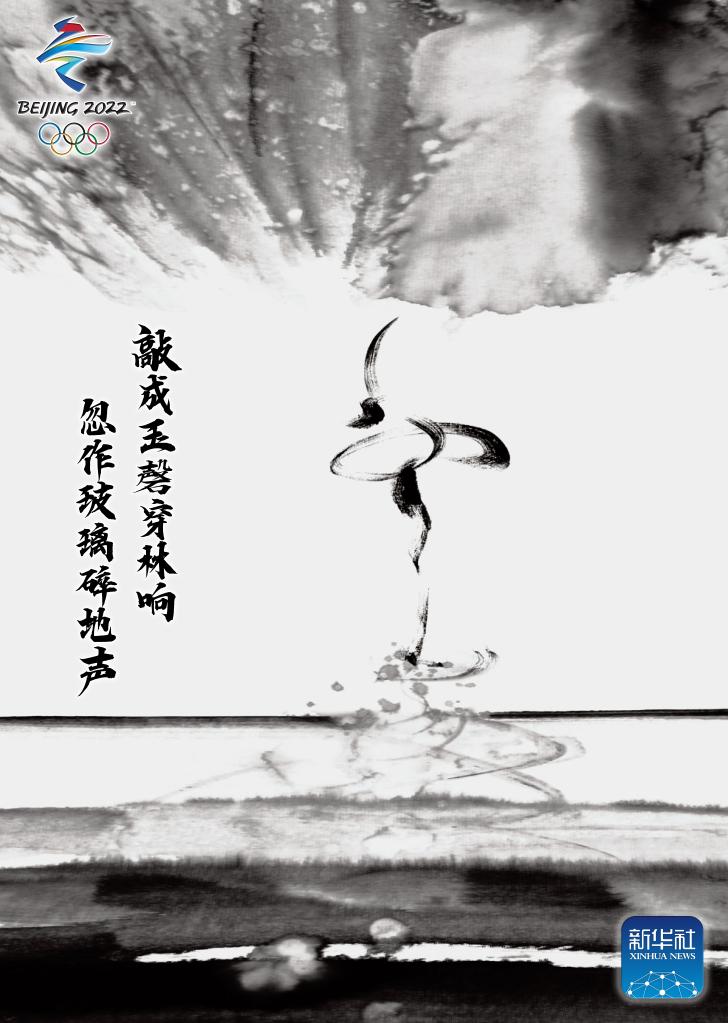 BEIJING 2022™
敲成玉磬穿林响
忽作玻璃碎地声
新华社
XINHUA NEWS